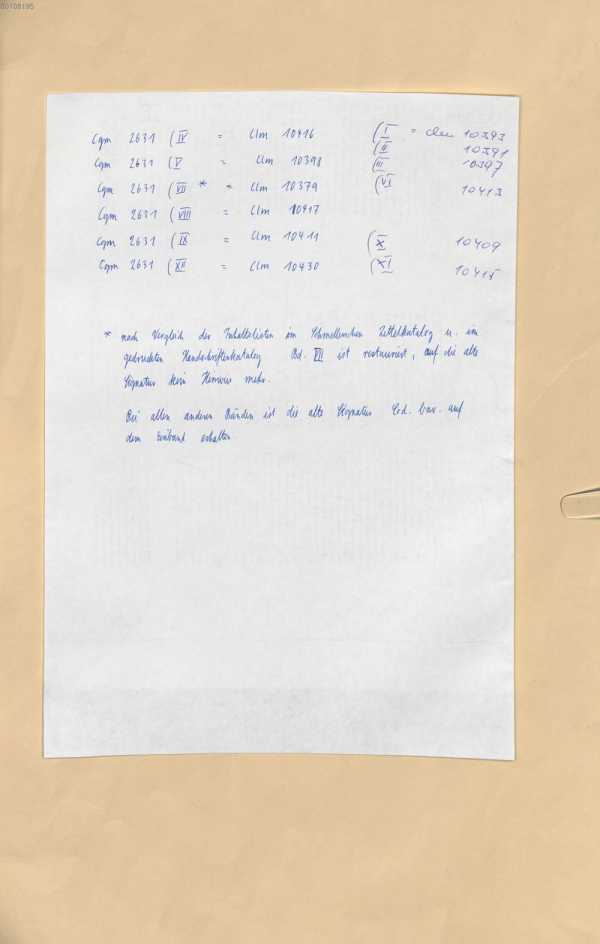 00108195
Cgm 2631 (IV = Clm 10416 (I = clm 10393
Cgm 2631 (V = Clm 10398 (II 10391
(III 10397
Cgm 2631 (VII * = Clm 10379 (VI 10413
Cgm 2631 (VIII = Clm 10417
Cgm 2631 (IX = Clm 10411 (X 10409
Cgm 2631 (XII = Clm 10430 (XI 10415
* nach Vergleich der Inhaltslisten im Schmellerschen Zettelkatalog u. im
gedruckten Handschriftenkatalog Bd. VII ist restauriert, auf die alte
Signatur kein Hinweis mehr.
Bei allen anderen Bänden ist die alte Signatur Cod. bav. auf
dem Einband erhalten